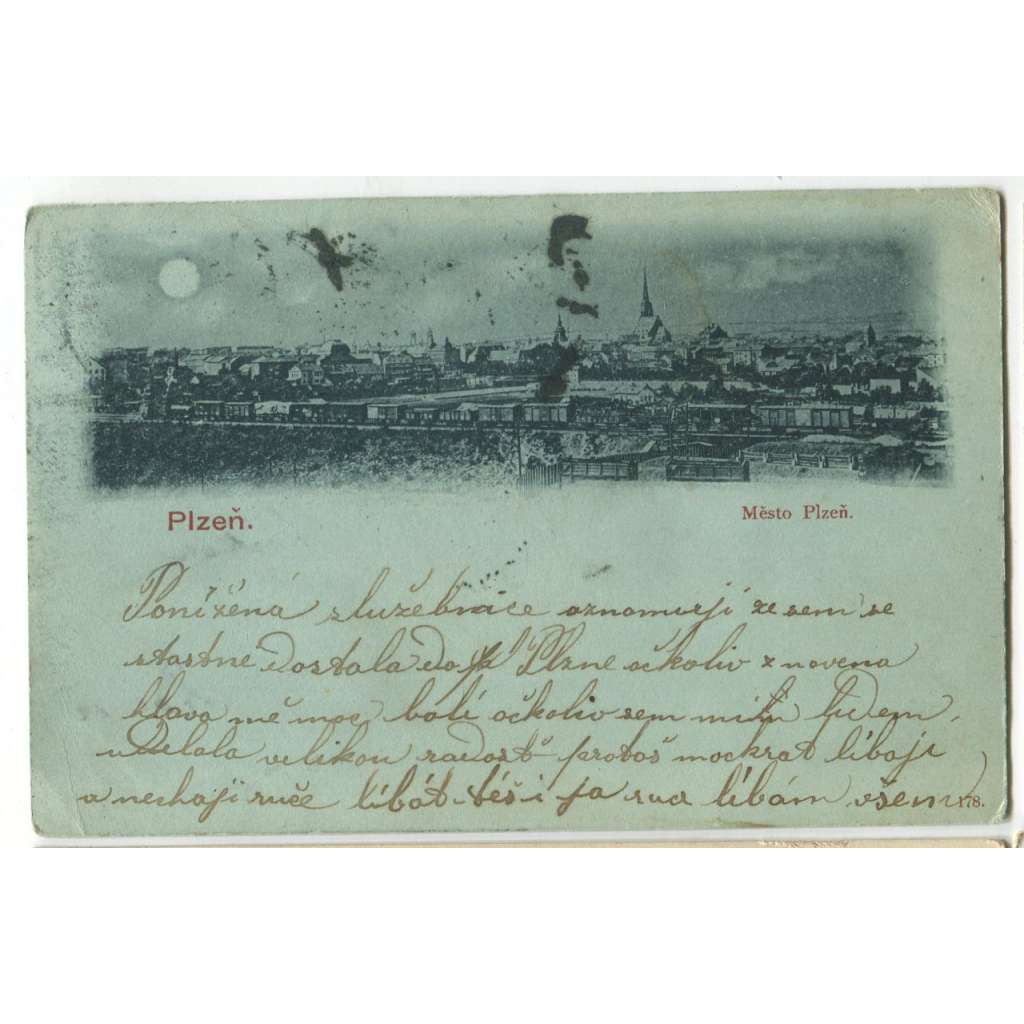 Plzeň.
Město Plzeň.
Ponížená služebnice oznamuji ze sem se
stastne dostala do Plzne očkoliv znovena
hlava mě moc bolí očkoliv sem mím lidem,
udelala velikou radosť protoš mockrat líbaji
a nechaji ruče líbát téš i ja ruce líbám všem
178.